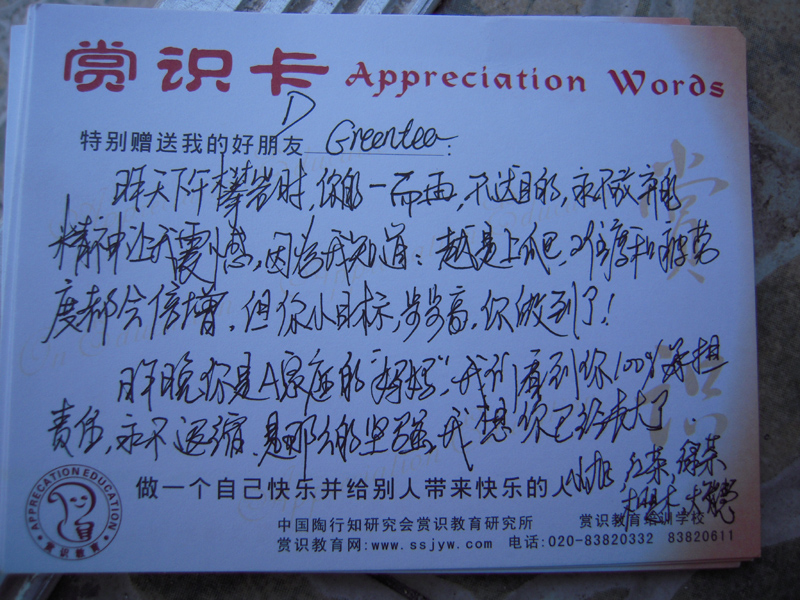 赏识卡 Appreciation Words
D
特别赠送我的好朋友 Greentea:
昨天下午攀岩时,你的一而再,不达目的,永不放弃的
精神让我震感,因为我知道:越是上爬,难度和疲劳
度都会倍增,但你小目标,步步高,你做到了!
昨晚你是A家庭的"妈妈",我们看到你100%承担
责任,永不退缩,是那么的坚强,我想你已经长大了.
做一个自己快乐并给别人带来快乐的人 小旭
APPRECATION EDUCATION
赏识教育
中国陶行知研究会赏识教育研究所 赏识教育培训学校
赏识教育网:www.ssjyw.com 电话:020-83820332 83820611
赏识